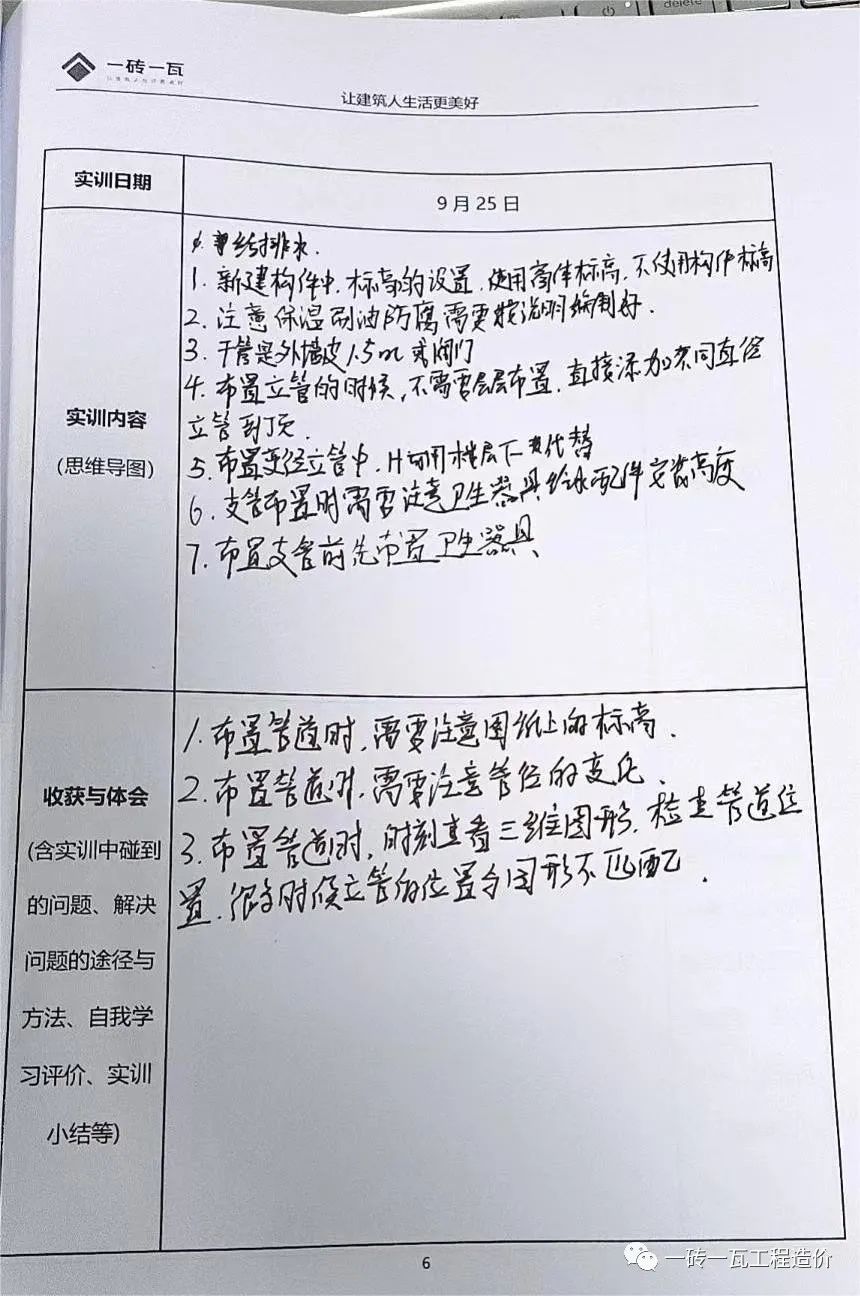 delete
一砖一瓦
让建筑人生活更美好
实训日期
9月25日
给排水.
1. 新建构件中,标高的设置,使用窗体标高,不使用构件标高
2. 注意保温刷油防腐需要按说明编制好.
3. 干管是外墙皮1.5m或阀门
4. 布置立管的时候,不需要层层布置,直接添加不同直径
立管到顶.
5. 布置变径立管中,可用楼层下代替
6. 支管布置时需要注意卫生器具给水配件安装高度
7. 布置支管前先布置卫生器具
实训内容
(思维导图)
1. 布置管道时,需要注意图纸上的标高.
2. 布置管道时,需要注意管径的变化.
3. 布置管道时,时刻查看三维图形,检查管道位
置.很多时候立管的位置与图形不匹配.
收获与体会
(含实训中碰到
的问题、解决
问题的途径与
方法、自我学
习评价、实训
小结等)
6
一砖一瓦工程造价